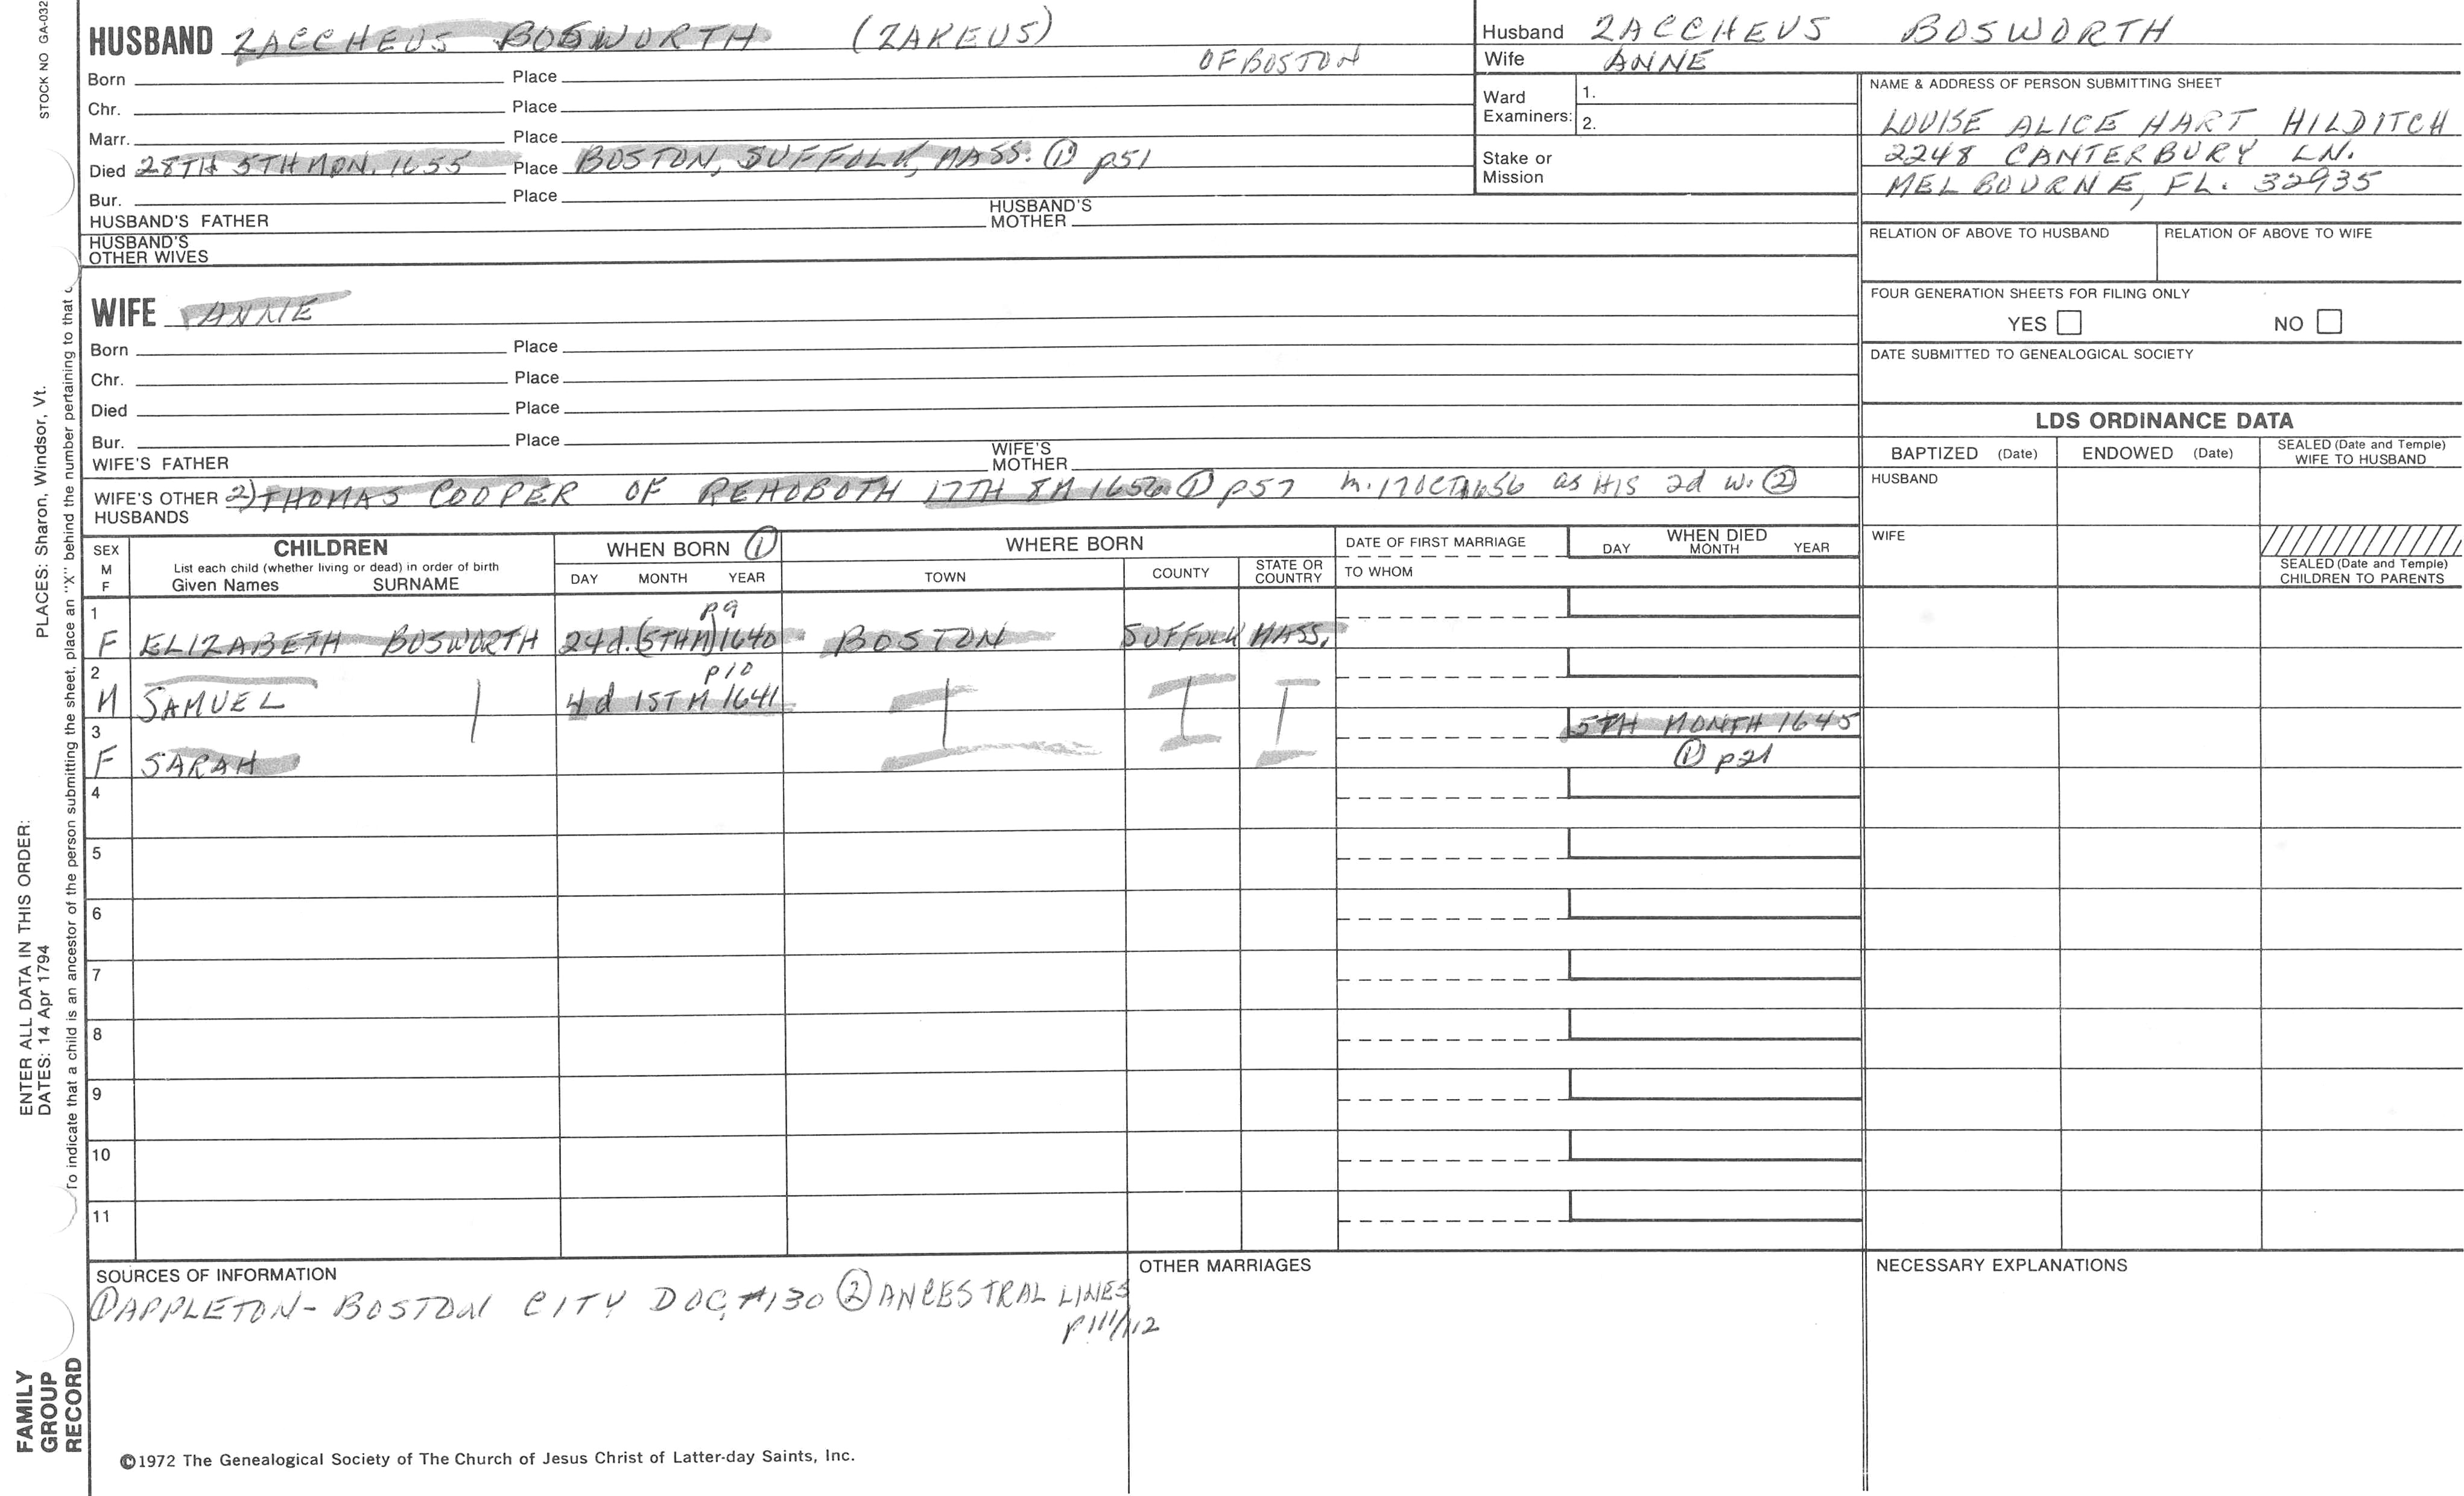 STOCK NO GA-032
HUSBAND ZACCHEUS BOSWORTH (ZAKEUS)
OF BOSTON
Born Place
Chr. Place
Marr. Place
Died 28TH 5TH MON. 1655 Place BOSTON, SUFFOLK, MASS. ① p51
Bur. Place
HUSBAND'S FATHER HUSBAND'S MOTHER
HUSBAND'S OTHER WIVES
Husband ZACCHEUS BOSWORTH
Wife ANNE
Ward Examiners: 1.
2.
Stake or Mission
NAME & ADDRESS OF PERSON SUBMITTING SHEET
LOUISE ALICE HART HILDITCH
2248 CANTERBURY LN.
MELBOURNE, FL. 32935
RELATION OF ABOVE TO HUSBAND RELATION OF ABOVE TO WIFE
FOUR GENERATION SHEETS FOR FILING ONLY
YES NO
DATE SUBMITTED TO GENEALOGICAL SOCIETY
WIFE ANNE
Born Place
Chr. Place
Died Place
Bur. Place
WIFE'S FATHER WIFE'S MOTHER
WIFE'S OTHER HUSBANDS 2) THOMAS COOPER OF REHOBOTH 17TH 8M 1656 ① p57 m. 17 OCT 1656 as HIS 2d w. ②
LDS ORDINANCE DATA
BAPTIZED (Date) ENDOWED (Date) SEALED (Date and Temple) WIFE TO HUSBAND
HUSBAND
WIFE
SEALED (Date and Temple) CHILDREN TO PARENTS
SEX M F
CHILDREN
List each child (whether living or dead) in order of birth
Given Names SURNAME
WHEN BORN ①
DAY MONTH YEAR
WHERE BORN
TOWN COUNTY STATE OR COUNTRY
DATE OF FIRST MARRIAGE
TO WHOM
WHEN DIED
DAY MONTH YEAR
1 p9
F ELIZABETH BOSWORTH 24d. (5TH M) 1640 BOSTON SUFFOLK MASS.
2 p10
M SAMUEL 4d 1ST M 1641
3 5TH MONTH 1645
F SARAH ① p21
4
5
6
7
8
9
10
11
SOURCES OF INFORMATION
① APPLETON - BOSTON CITY DOC, #130 ② ANCESTRAL LINES
p111/112
OTHER MARRIAGES
NECESSARY EXPLANATIONS
©1972 The Genealogical Society of The Church of Jesus Christ of Latter-day Saints, Inc.
FAMILY
GROUP
RECORD
ENTER ALL DATA IN THIS ORDER:
DATES: 14 Apr 1794
PLACES: Sharon, Windsor, Vt.
To indicate that a child is an ancestor of the person submitting the sheet, place an "X" behind the number pertaining to that